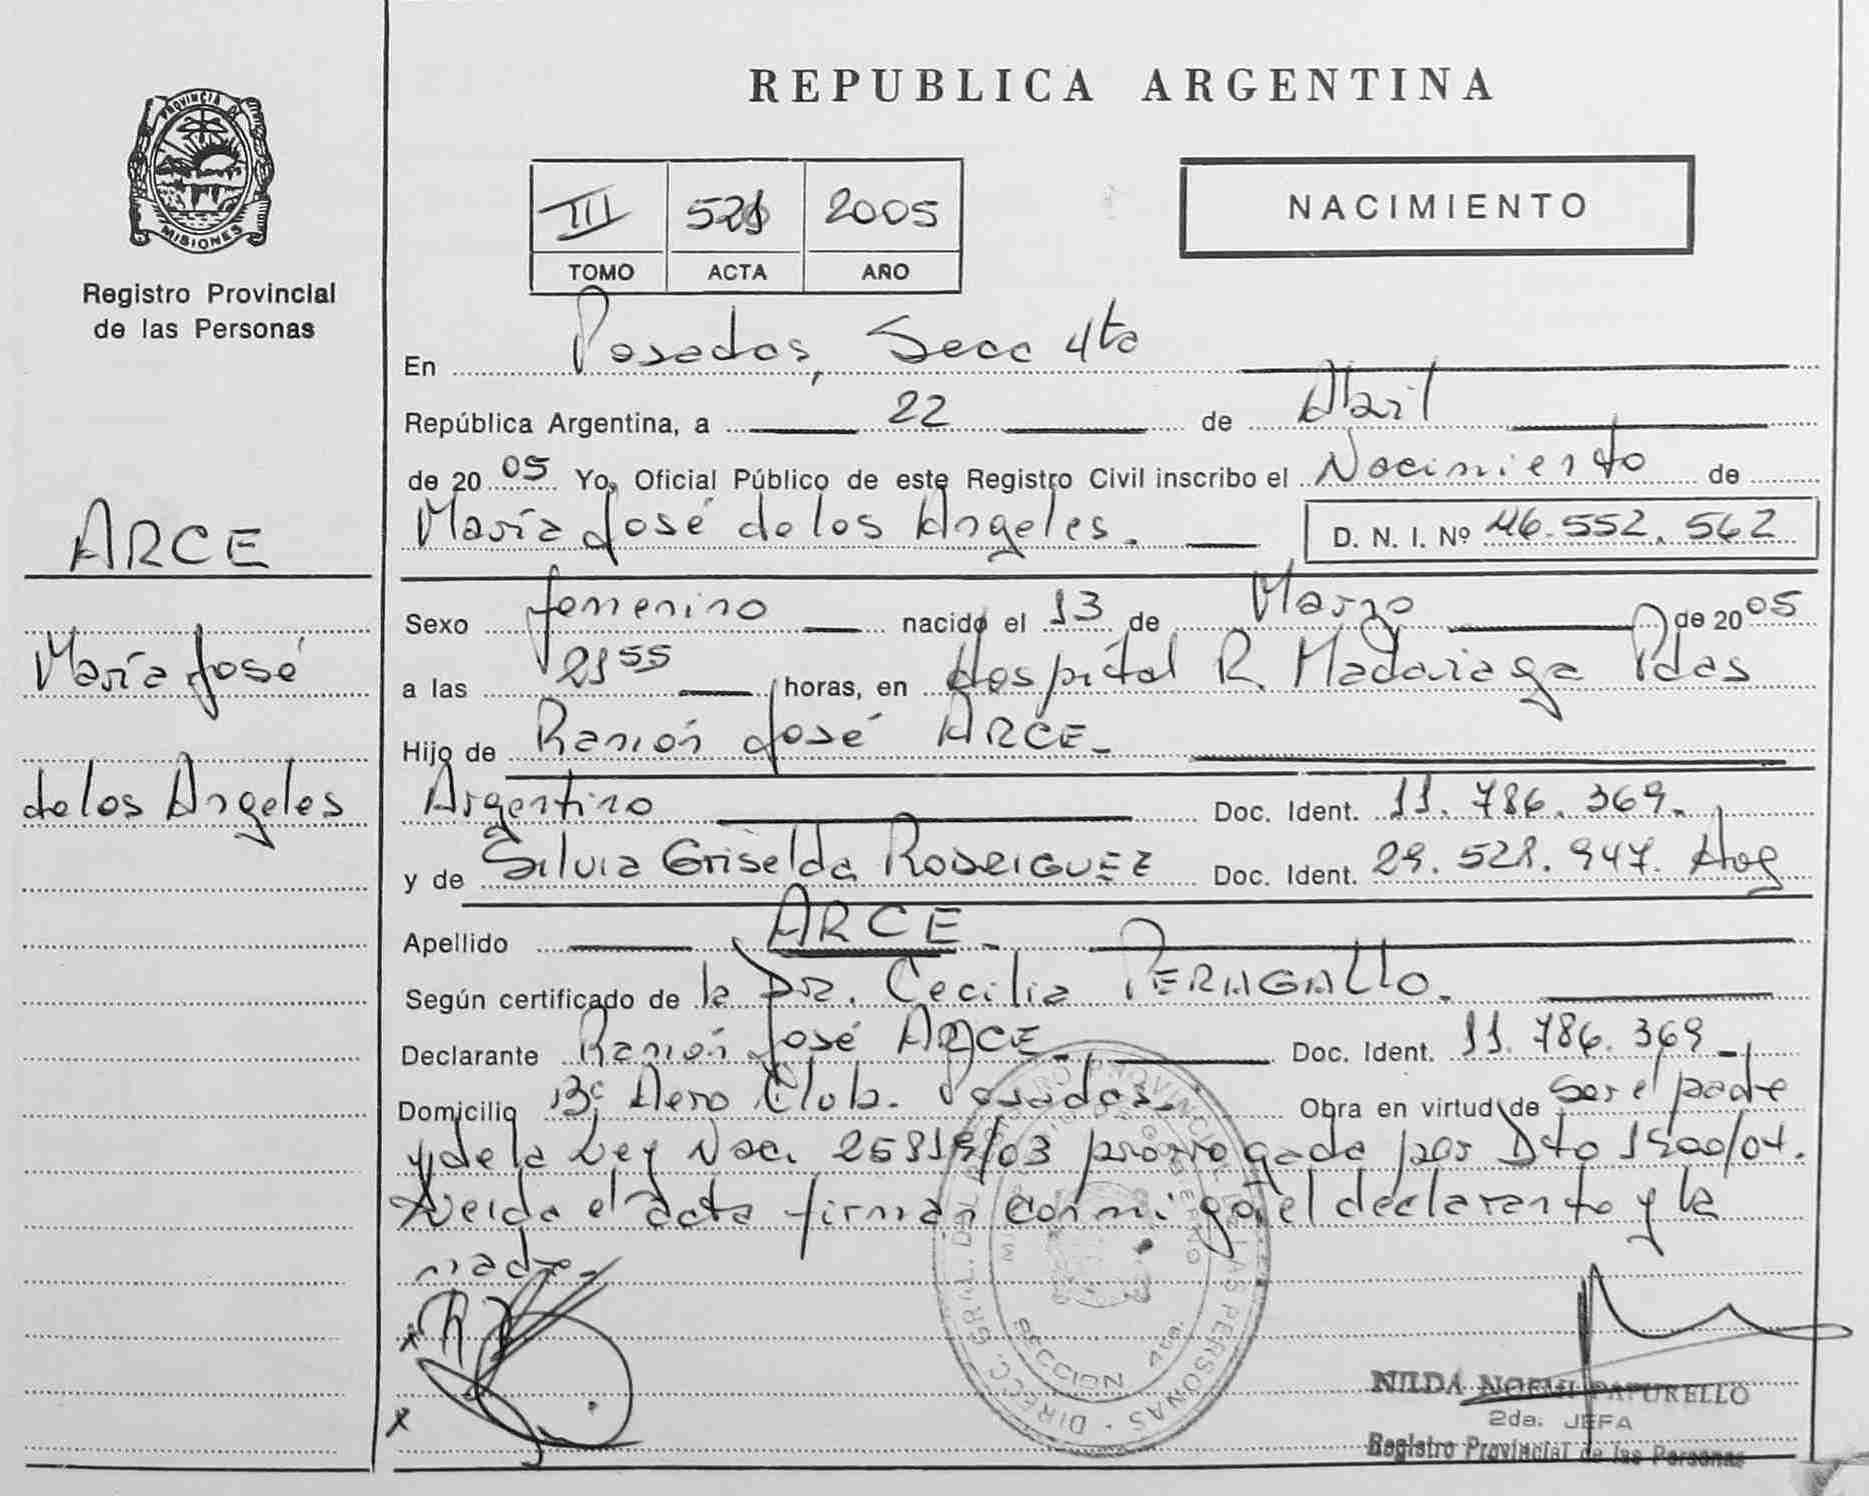 PROVINCIA DE
MISIONES
Registro Provincial
de las Personas
ARCE
María José
de los Angeles
REPUBLICA ARGENTINA
III 521 2005
TOMO ACTA AÑO
NACIMIENTO
En Posadas, Secc 4ta
República Argentina, a 22 de Abril
de 2005 Yo, Oficial Público de este Registro Civil inscribo el Nacimiento de
María José de los Angeles. D. N. I. Nº 46.552.562
Sexo femenino nacido el 13 de Marzo de 2005
a las 21 55 horas, en Hospital R. Madariaga Pdas
Hijo de Ramón José ARCE
Argentino Doc. Ident. 11.786.369.
y de Silvia Griselda RODRIGUEZ Doc. Ident. 29.528.947. Arg
Apellido ARCE
Según certificado de la Dra. Cecilia PERAGALLO.
Declarante Ramón José ARCE Doc. Ident. 11.786.369
Domicilio Bº Aero Club. Posadas. Obra en virtud de ser el padre
y de la Ley Nac. 25819/03 prorrogada por Dto 1500/04.
Leida el acta firman conmigo, el declarante y la
madre
DIRECC. GRAL. DEL REGISTRO PROVINCIAL DE LAS PERSONAS
SECCION 4ta.
NILDA NOEMI PAPURELLO
2da. JEFA
Registro Provincial de las Personas